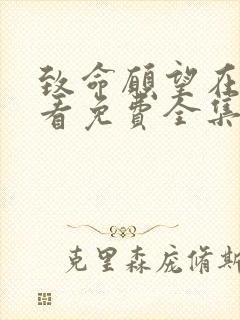 致命愿望在
看免费全集
克里森庞脩斯